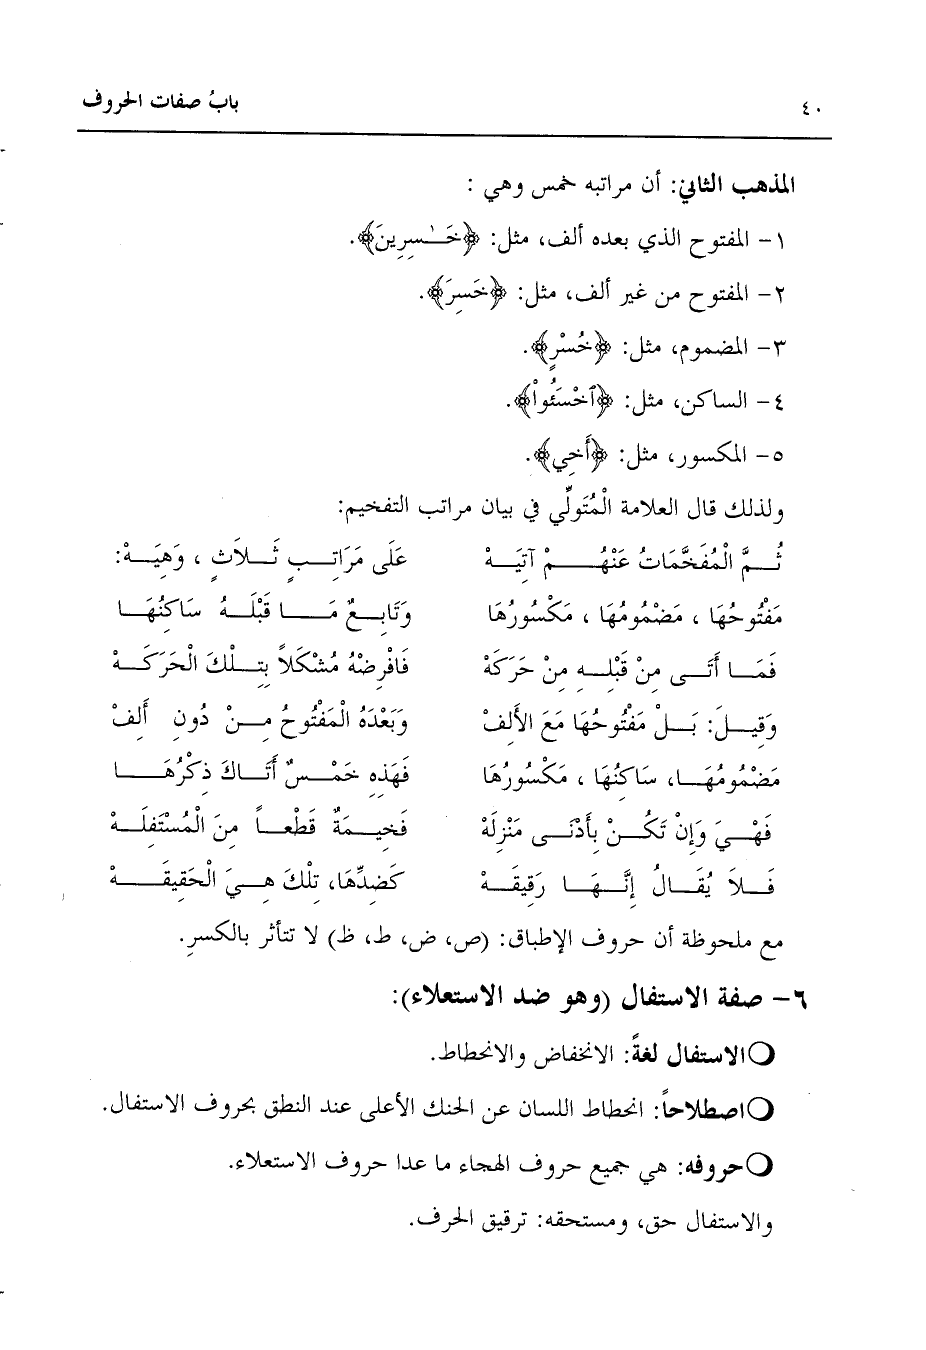 ٤٠ بابُ صفات الحروف
المذهب الثاني: أن مراتبه خمس وهي :
١- المفتوح الذي بعده ألف، مثل: ﴿خَـٰسِرِينَ﴾.
٢- المفتوح من غير ألف، مثل: ﴿خَسِرَ﴾.
٣- المضموم، مثل: ﴿خُسْرٍ﴾.
٤- الساكن، مثل: ﴿ٱخْسَئُواْ﴾.
٥- المكسور، مثل: ﴿أَخِي﴾.
ولذلك قال العلامة الْمُتَولِّي في بيان مراتب التفخيم:
ثُــمَّ الْمُفَخَّمَاتُ عَنْهُــــمْ آتِيَــهْ عَلَى مَرَاتِــبٍ ثَــلَاثٍ ، وَهِيَــهْ:
مَفْتُوحُهَا ، مَضْمُومُهَا ، مَكْسُورُهَا وَتَابِــعٌ مَــا قَبْلَــهُ سَاكِنُهَــا
فَمَــا أَتَــى مِنْ قَبْلِــهِ مِنْ حَرَكَهْ فَافْرِضْهُ مُشْكَلاً بِتِــلْكَ الْحَرَكَــهْ
وَقِيــلَ: بَــلْ مَفْتُوحُهَا مَعَ الأَلِفْ وَبَعْدَهُ الْمَفْتُوحُ مِــنْ دُونِ أَلِفْ
مَضْمُومُهَــا، سَاكِنُهَا ، مَكْسُورُهَا فَهَذِهِ خَمْــسٌ أَتَــاكَ ذِكْرُهَــا
فَهْيَ وَإِنْ تَكُــنْ بِأَدْنَــى مَنْزِلَهْ فَخِيــمَةٌ قَطْعــاً مِنَ الْمُسْتَفِلَــهْ
فَــلاَ يُقَــالُ إِنَّــهَا رَقِيقَــهْ كَضِدِّهَا، تِلْكَ هِــيَ الْحَقِيقَــهْ
مع ملحوظة أن حروف الإطباق: (ص، ض، ط، ظ) لا تتأثر بالكسرِ.
٦- صفة الاستفال (وهو ضد الاستعلاء):
❍الاستفال لغةً: الانخفاض والانحطاط.
❍اصطلاحاً: انحطاط اللسان عن الحنك الأعلى عند النطق بحروف الاستفال.
❍حروفه: هي جميع حروف الهجاء ما عدا حروف الاستعلاء.
والاستفال حق، ومستحقه: ترقيق الحرف.